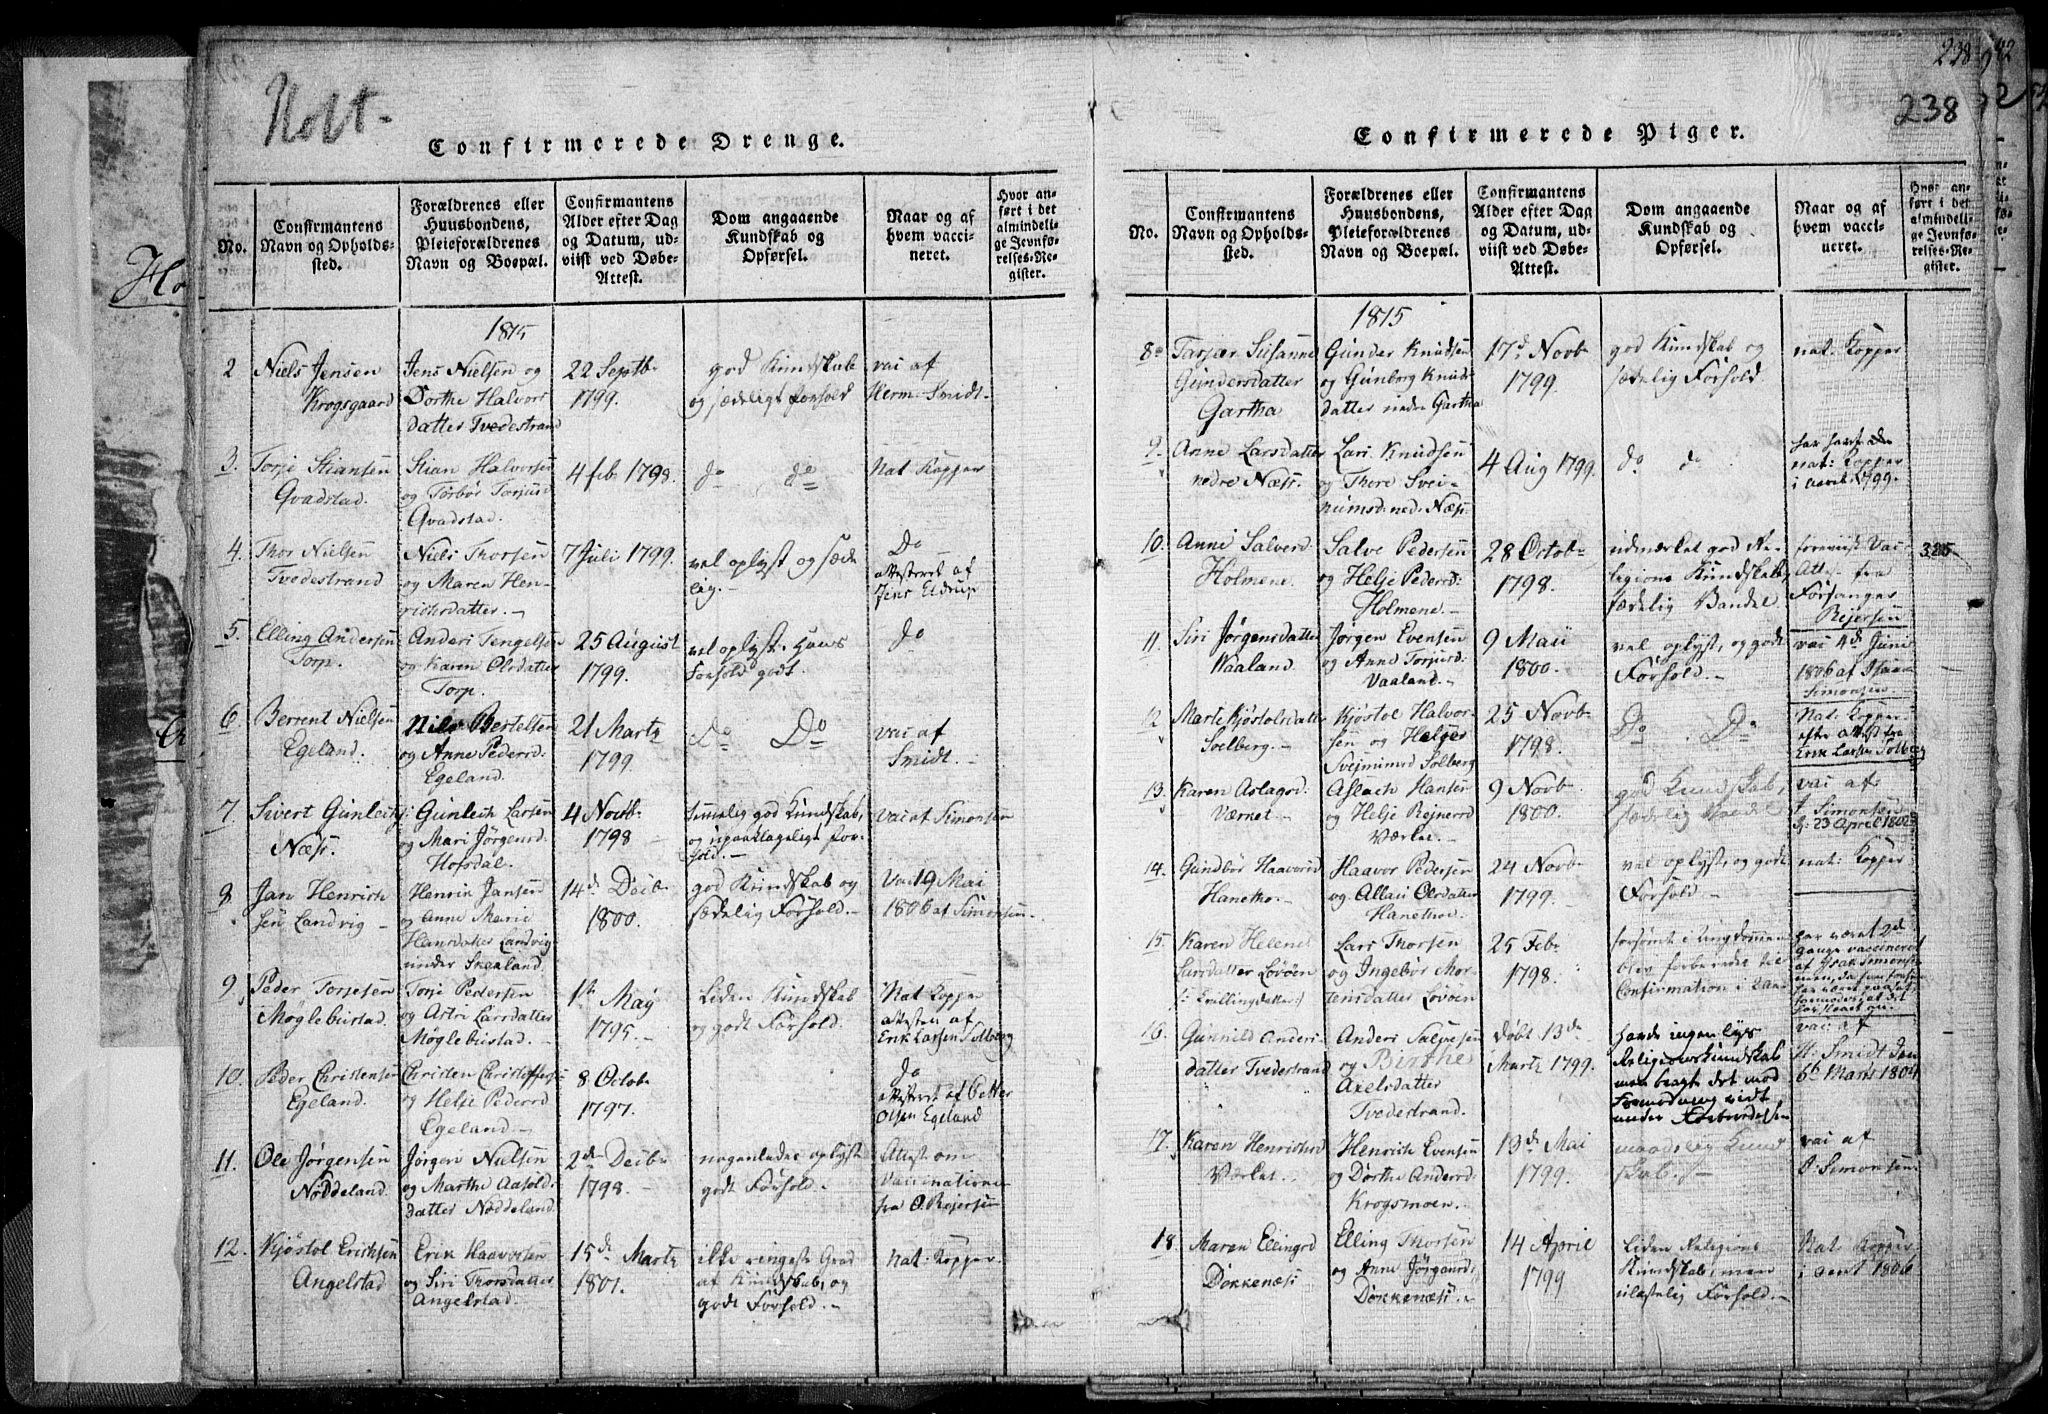 Holt.
Confirmerede Drenge.
No.
Confirmantens Navn og Opholds-sted.
Forældrenes eller Huusbondens, Pleieforældrenes Navn og Boepæl.
Confirmantens Alder efter Dag og Datum, ud-viist ved Døbe-Attest.
Dom angaaende Kundskab og Opførsel.
Naar og af hvem vacci-neret.
Hvor an-ført i det almindeli-ge Jevnfø-relses-Re-gister.
1815
2 Niels Jensen Krogsgaard
Jens Nielsen og Dorthe Halvors datter Tvedestrand
22 Septb. 1799.
god Kundskab og sædeligt forhold
vac: af Herm: Smidt.
3. Torje Stiansen Qvadstad.
Stian Halvorsen og Torbor Torjus: Qvadstad.
4 feb. 1798.
do do
Nat Kopper
4. Thor Nielsen Tvedestrand
Niels Thorsen og Maren Hen-richsdatter.
7 Juli 1799.
vel oplyst og sæde lig.
Do attesteret af Jens Eldrup
5. Elling Andersen Torp.
Anders Tengelsen og Karen Olsdatter Torp.
25 August 1799.
vel oplyst. Hans Forhold godt.
do
6. Berrent Nielsen Egeland.
Nils Bertelsen og Anne Pedersd Egeland.
21 Marts 1799.
Do Do
vac: af Smidt.
7. Sivert Gunlechs: Næss.
Gunlech Larsen og Mari Jørgensd Hofsdal.
4 Novb. 1798
temmelig god Kundskab, og upaaklageligt for-hold.
Vac: af Simonsen
8 Jan Henrich sen Landvig
Henrik Jansen og Anne Marie Hansdatter Landvig under Skaaland
14de Decb. 1800.
god Kundskab og sædelig Forhold.
Vac 19 Mai 1806 af Simonsen.
9. Peder Torjesen Møglebustad.
Torje Pedersen og Astri Larsdatter Møglebustad.
1te May 1795.
Liden Kundskab og godt Forhold.
Nat Kopper attesten af Erik Larsen Solberg
10. Peder Christensen Egeland.
Christen Christoffersen og Helje Pedersd Egeland.
8 Octob. 1797.
do attesteret af Petter Olsen Egeland
11. Ole Jørgensen Nøddeland.
Jørgen Nielsen og Marthe Aasold: datter Nøddeland.
2de Decb. 1798.
nogenledes oplyst godt Forhold.
Attest om Vaccinationen fra O. Rejersen
12. Kjøstol Ericksen Angelstad
Erik Haavorsen og Siri Thorsdatter Angelstad.
15de Marts 1801.
ikke ringeste Grad af Kundskab, og godt Forhold.
Nat: Kopper.
238
238
Confirmerede Piger.
No.
Confirmantens Navn og Opholds-sted.
Forældrenes eller Huusbondens, Pleieforældrenes Navn og Boepæl.
Confirmantens Alder efter Dag og Datum, ud-viist ved Døbe-Attest.
Dom angaaende Kundskab og Opførsel.
Naar og af hvem vacci-neret.
Hvor an-ført i det almindeli-ge Jevnfø-relses-Re-gister.
1815
8. Tarjær Susanne Gundersdatter Gartha
Gunder Knudsen og Gunborg Knuds datter nedre Gartha
17de Novb 1799.
god Kundskab og sædelig Forhold.
nat: Kopper
9. Anne Larsdatter nedre Næss.
Lars Knudsen og Thore Svei-numsd: ned: Næss
4 Aug 1799.
do do
har havt de nat: Kopper i 1799.
10. Anne Salvesd Holmene.
Salve Pedersen og Helje Pedersd: Holmene.
28 Octob. 1798.
udmærket god Re-ligions Kundskab, sædelig Vandel.
foreviist Vac: Att: fra Forsanger Rejersen
325
11. Siri Jørgensdatter Waaland.
Jørgen Evensen og Anne Torjusd: Vaaland.
9 Maii 1800.
vel oplyst, og godt Forhold.
vac: 4de Juni 1806 af Isaac Simonsen.
12 Marte Kjøstolsdatter Soelberg.
Kjøstol Halvor-sen og Helger Svejnumsd Solberg
25 Novb 1798.
Do Do
Nat: Kopper efter Attest fra Erik Larsen Solberg
13. Karen Aslagsd. Værnet.
Aslach Hansen og Helje Rejnersd Værlet.
9 Novb. 1800.
god Kundskab, sædelig Vandel
vac: af I: Simonsen d: 23 April 1802
14. Gundbor Haavorsd Hanetho.
Haavor Pedersen og Allau Olsdatter Hanethoe.
24 Novb 1799.
vel oplyst, og godt Forhold.
nat: Kopper
15. Karen Helene Larsdatter Lovøen (: tvillingdatter :)
Lars Thorsen og Ingebor Mor-tensdatter Lovøen
25 Feb. 1798.
forsømt i Ungdommen blev forberedet til Confirmation i
har været 2de Gange vaccineret af Isak Simonsen
16. Gunnild Anders datter Tvedestrand
Anders Salvesen og Birthe Axelsdatter Tvedestrand.
Døbt 13de Marts 1799.
havde ingen lys Religionskundskab man bragte det med under Forberedelsen
vac: af H: Smidt den 6te Marts 1804
17. Karen Henrichsd Værlet.
Henrich Evensen og Dorthe Andersd: Krogsmoen.
13de Mai 1799.
maadelig Kund skab.
vac af I: Simonsen.
18. Maren Ellingsd Dokkenæs
Elling Thorsen og Anne Jørgensd: Dokkenæs.
14 April 1799
Liden Religions Kundskab, men ulastelig Forhold.
Nat: Kopper i 1806